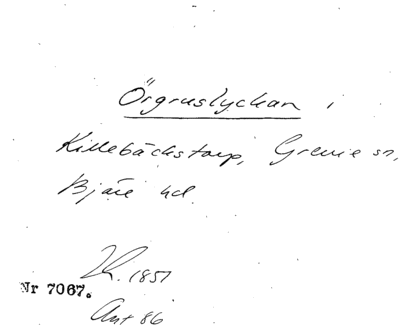 Örgruslyckan i
Killebäckstorp, Grevie sn,
Bjäre hd.
1851
Nr 7067.
Ant 86